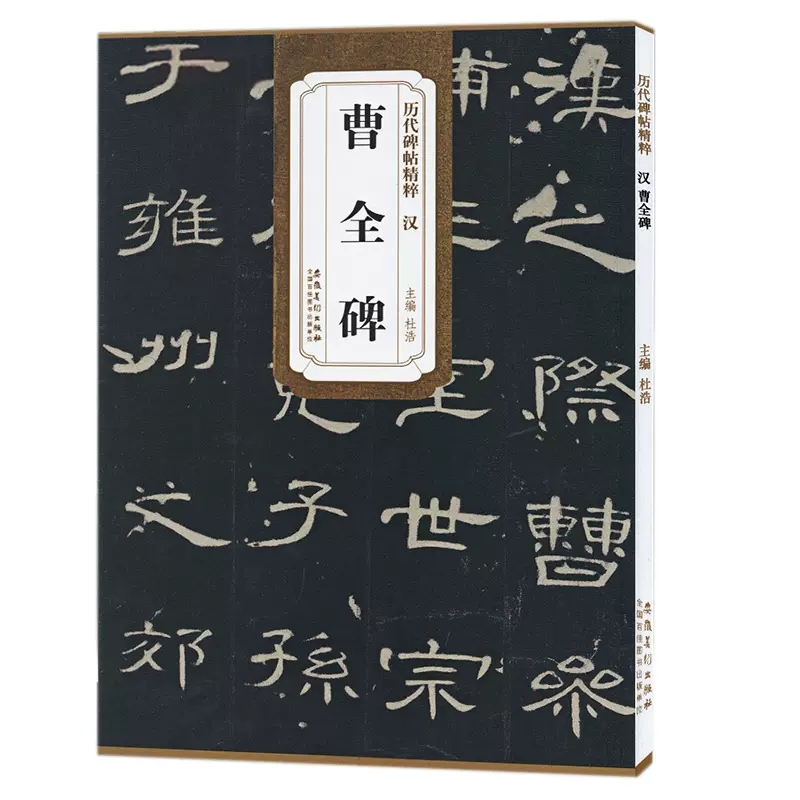 历代碑帖精粹 汉
曹全碑
主编 杜浩
安徽美术出版社
全国百佳图书出版单位
漢之際曹參
室世宗
子孫
于雍州之郊
历代碑帖精粹 汉 曹全碑
主编 杜浩
安徽美术出版社
全国百佳图书出版单位